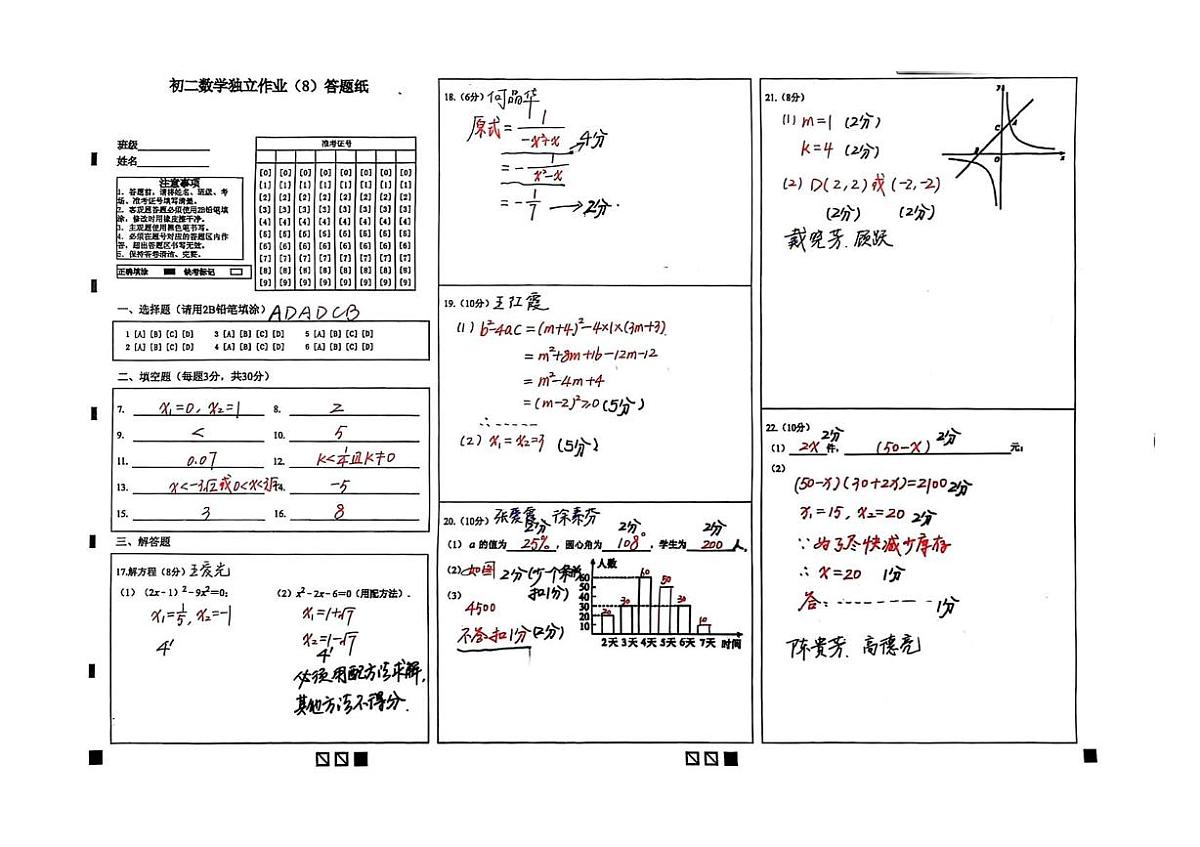 初二数学独立作业（8）答题纸
班级
姓名
准考证号
注意事项
1．答题前，请将姓名、班级、考
场、准考证号填写清楚。
2．客观题答题必须使用2B铅笔填
涂，修改时用橡皮擦干净。
3．主观题使用黑色笔书写。
4．必须在题号对应的答题区内作
答，超出答题区书写无效。
5．保持答卷清洁、完整。
正确填涂 缺考标记
[0] [0] [0] [0] [0] [0] [0] [0]
[1] [1] [1] [1] [1] [1] [1] [1]
[2] [2] [2] [2] [2] [2] [2] [2]
[3] [3] [3] [3] [3] [3] [3] [3]
[4] [4] [4] [4] [4] [4] [4] [4]
[5] [5] [5] [5] [5] [5] [5] [5]
[6] [6] [6] [6] [6] [6] [6] [6]
[7] [7] [7] [7] [7] [7] [7] [7]
[8] [8] [8] [8] [8] [8] [8] [8]
[9] [9] [9] [9] [9] [9] [9] [9]
一、选择题（请用2B铅笔填涂）ADADCB
1 [A] [B] [C] [D] 3 [A] [B] [C] [D] 5 [A] [B] [C] [D]
2 [A] [B] [C] [D] 4 [A] [B] [C] [D] 6 [A] [B] [C] [D]
二、填空题（每题3分，共30分）
7. x₁=0, x₂=1 8. 2
9. < 10. 5
11. 0.07 12. k<1/4且k≠0
13. x<-3√2或0<x<3√2 14. -5
15. 3 16. 8
三、解答题
17.解方程（8分）王爱光
（1）(2x-1)²-9x²=0; （2）x²-2x-6=0（用配方法）.
x₁=1/5, x₂=-1 x₁=1+√7
x₂=1-√7
4' 4'
必须用配方法求解,
其他方法不得分.
18.（6分）何晶华
原式=1/(-x²+x) 4分
=-1/(x²-x)
=-1/7 →2分.
19.（10分）王红霞
(1) b²-4ac=(m+4)²-4×1×(3m+3)
=m²+8m+16-12m-12
=m²-4m+4
=(m-2)²≥0 (5分)
∴------
(2) x₁=x₂=3 (5分)
20.（10分）张爱霞 徐素芬
2分 2分。 2分
（1）a 的值为 25%, 圆心角为 108, 学生为 200 人.
(2) 如图 2分(少一个条形
扣1分)
(3)
4500
不答扣1分(2分)
人数
60
50
40
30
20
10
20 30 60 50 30 10
2天 3天 4天 5天 6天 7天 时间
21.（8分）
(1) m=1 (2分)
k=4 (2分)
(2) D(2,2)或(-2,-2)
(2分) (2分)
戴晓芳. 顾跃
y
C A
B O x
22.（10分）
2分 2分
（1）2x 件, (50-x) 元;
（2）
(50-x)(30+2x)=2100 2分
x₁=15, x₂=20 2分
∵为了尽快减少库存
∴x=20 1分
答:-------- 1分
陈贵芳. 高德亮